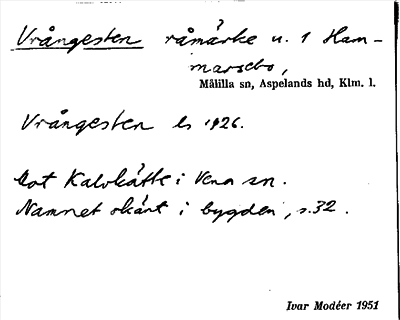 Vrångesten råmärke u. 1 Ham-
marsebo,
Målilla sn, Aspelands hd, Klm. l.
Vrångesten ls 1926.
Mot Kalvkätte i Vena sn.
Namnet okänt i bygden, s. 32.
Ivar Modéer 1951